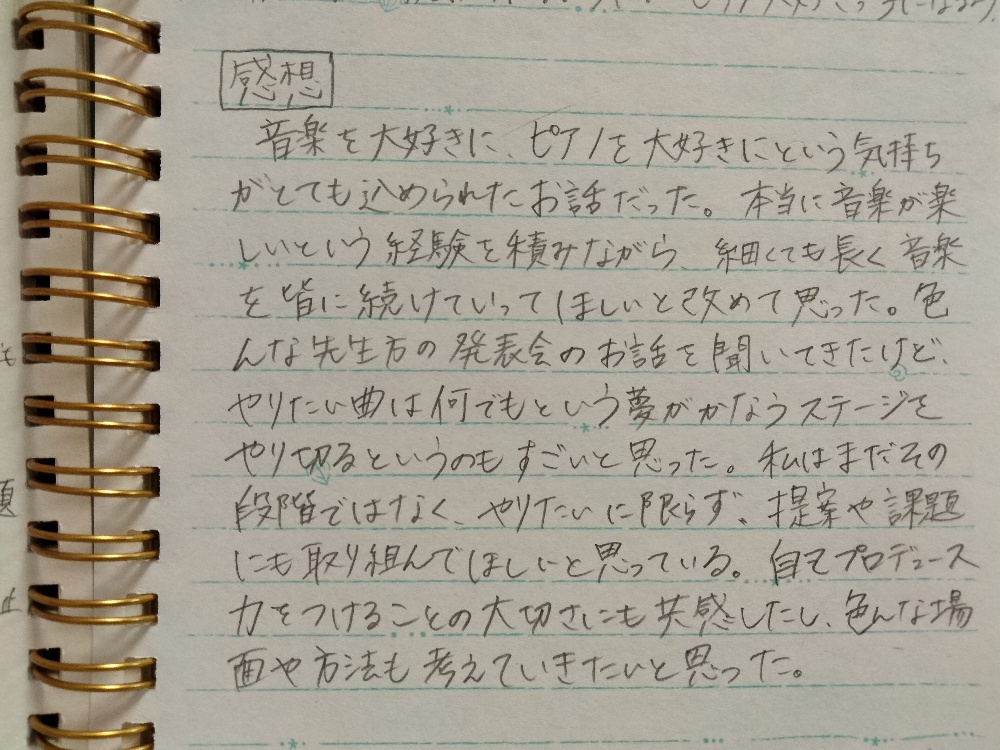 感想
音楽を大好きに、ピアノを大好きにという気持ち
がとても込められたお話だった。本当に音楽が楽
しいという経験を積みながら、細くても長く音楽
を皆に続けていってほしいと改めて思った。色
んな先生方の発表会のお話を聞いてきたけど、
やりたい曲は何でもという夢がかなうステージを
やり切るというのもすごいと思った。私はまだその
段階ではなく、やりたいに限らず、提案や課題
にも取り組んでほしいと思っている。自モプロデュース
力をつけることの大切さにも共感したし、色んな場
面や方法も考えていきたいと思った。